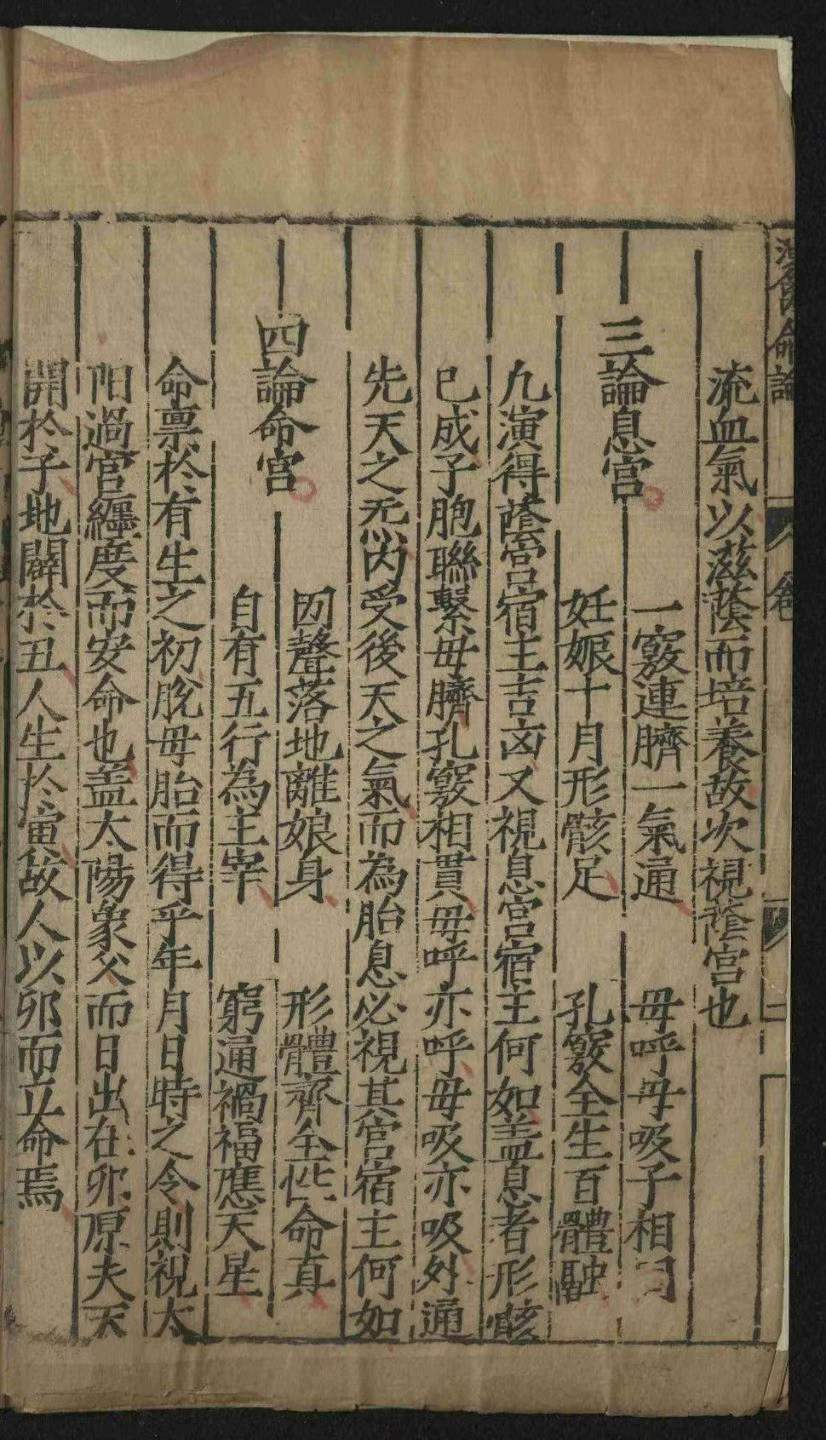 命論
卷
二
流血氣以滋蔭而培養故次視蔭宮也
三論息宮
一竅連臍一氣通
母呼母吸子相同
妊娠十月形骸足
孔竅全生百體融
凢演得蔭宮宿主吉凶又視息宮宿主何如盖息者形骸
已成子胞聯繫毋臍孔竅相貫毋呼亦呼毋吸亦吸外通
先天之炁内受後天之氣而為胎息必視其宮宿主何如
四論命宮
囡聲落地離娘身
形體齊全性命真
自有五行為主宰
窮通禍福應天星
命禀於有生之初脫毋胎而得乎年月日時之令則視太
阳過宮纏度而安命也盖太陽象父而日出在卯原夫天
開於子地闢於丑人生於寅故人以卯而立命焉